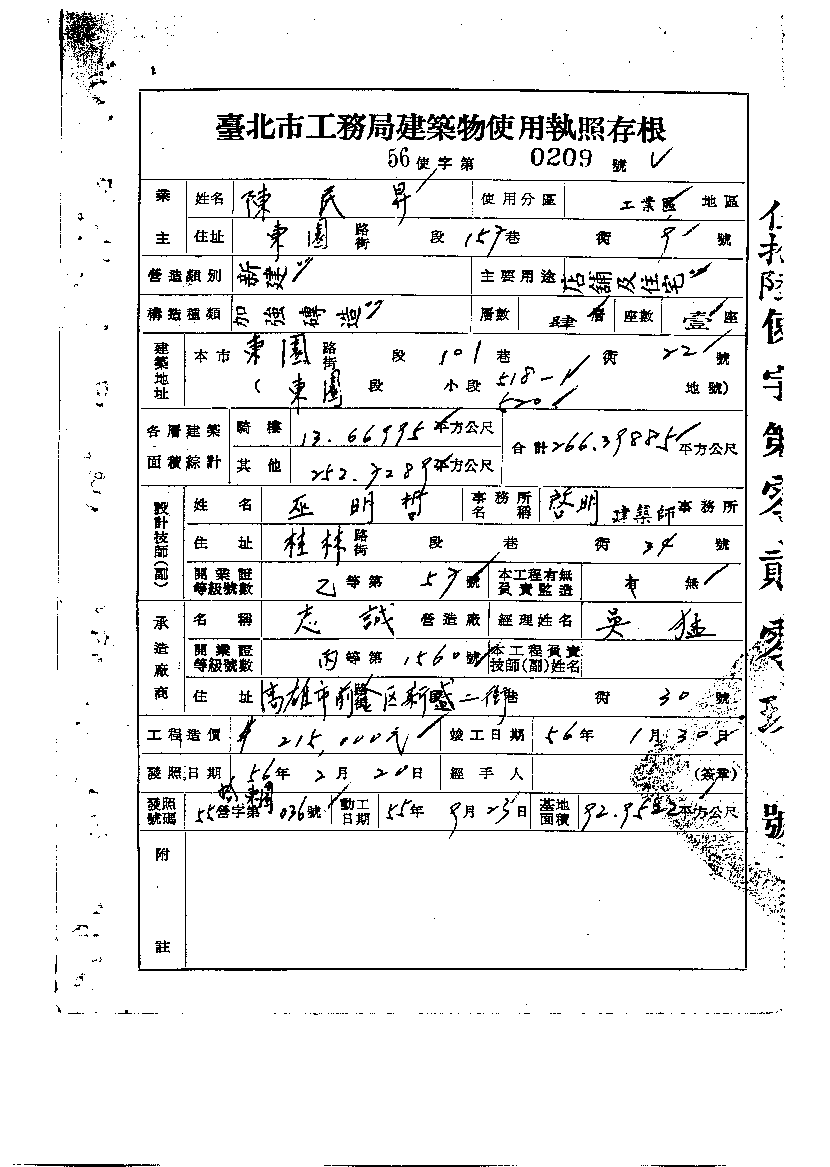 臺北市工務局建築物使用執照存根
56 使字第 0209 號
業主 姓名 陳民昇 使用分區 工業區 地區
住址 東園 路街 段 157 巷 衖 9 號
營造類別 新建 主要用途 店舖及住宅
構造種類 加強磚造 層數 肆層 座數 壹座
建築地址 本市 東園 路街 段 101 巷 衖 22 號
( 東園 段 小段 518-1 地號)
520
各層建築面積綜計 騎樓 13.66995 平方公尺 合計 266.39885 平方公尺
其他 252.7289 平方公尺
設計技師(副) 姓名 巫明哲 事務所名稱 啓明 建築師 事務所
住址 桂林 路街 段 巷 衖 34 號
開業證等級號數 乙等第 57 號 本工程有無負責監造 有 無
承造廠商 名稱 志誠 營造廠 經理姓名 吳猛
開業證等級號數 丙等第 1560 號 本工程負責技師(副)姓名
住址 高雄市前金区新盛二街 巷 衖 30 號
工程造價 $ 215,000元 竣工日期 56年 1月 30日
發照日期 56年 2月 20日 經手人 (簽章)
發照號碼 55 營字第 036 號 動工日期 55年 9月 23日 基地面積 平方公尺
東園
附註
伍拾陸使字第零貳零玖號